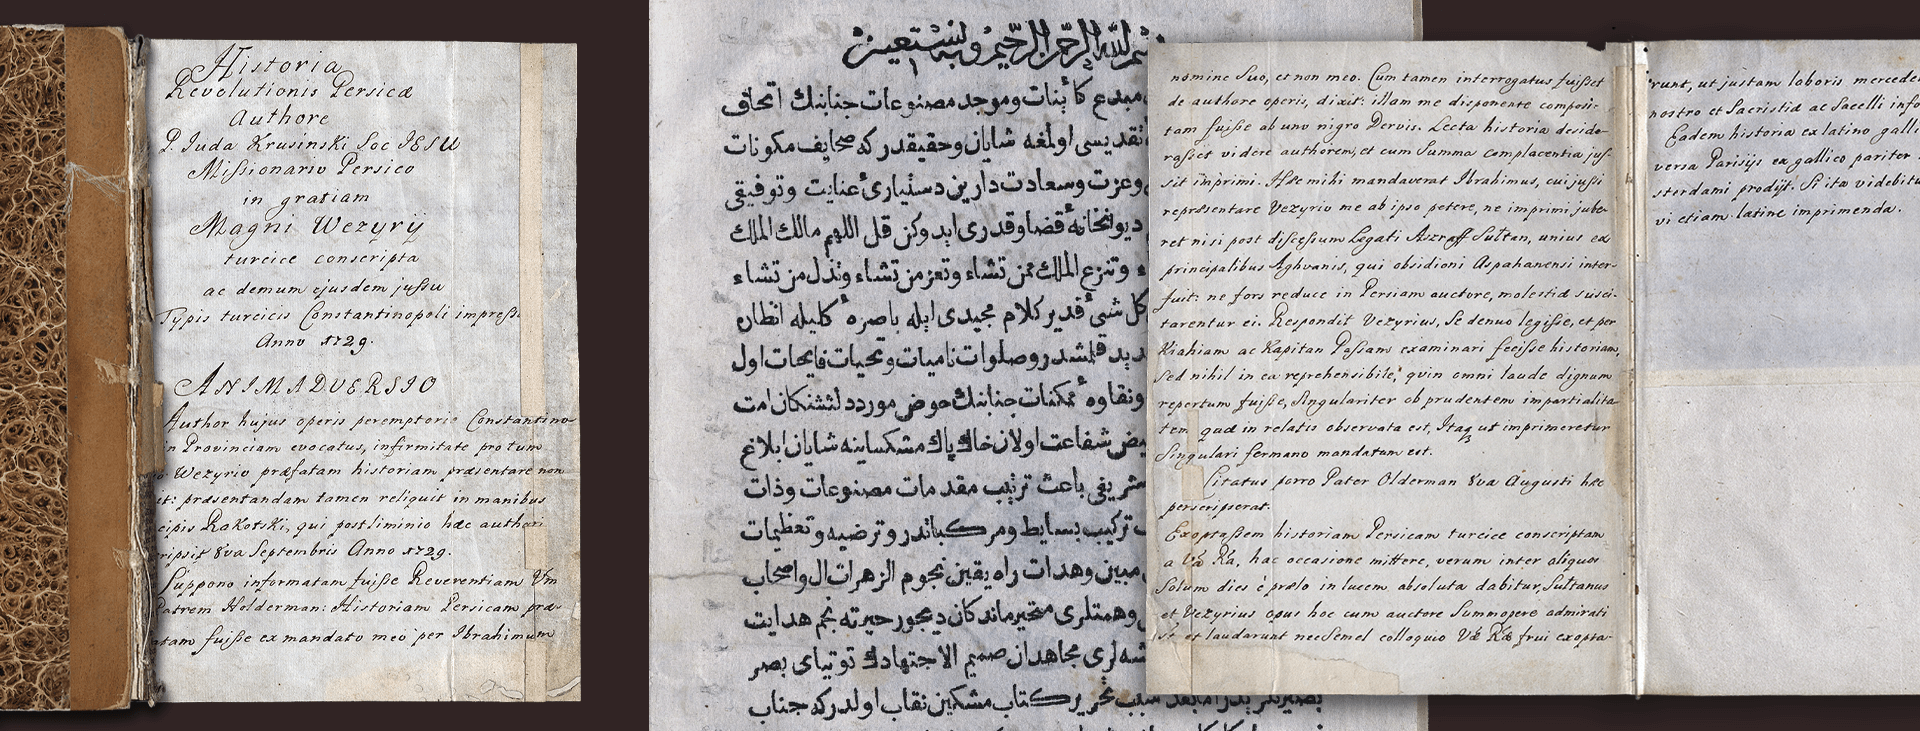 Historia
Revolutionis Persicæ
Authore
P. Juda Krusinski Soc JESU
Missionario Persico
in gratiam
Magni Wezyrij
turcice conscripta
ac demum ejusdem jussu
Typis turcicis Constantinopoli impressa
Anno 1729.
ANIMADVERSIO
Author hujus operis peremptorie Constantino-
in Provinciam evocatus, infirmitate pro tum
Wezyrio præfatam historiam præsentare non
it: præsentandam tamen reliquit in manibus
cipis Rakotski, qui postliminio hæc authori
ripsit 8va Septembris Anno 1729.
Suppono informatam fuisse Reverentiam Vm
Patrem Holderman: Historiam Persicam præ-
atam fuisse ex mandato meo per Ibrahimum
بسم الله الرحمن الرحيم وبه نستعين
مبدع كائنات وموجد مصنوعات جنابنك اتحاف
تقديسى اولغه شايان وحقيقدر كه صحايف مكونات
وعزت وسعادت دارين دستيارئ عنايت وتوفيقى
ديوانخانهٔ قضا وقدرى ابد وكن قل اللهم مالك الملك
وتنزع الملك ممن تشاء وتعز من تشاء وتذل من تشاء
كل شئ قدير كلام مجيدى ايله باصرهٔ كليله انظاره
قلمشدر وصلوات ناميات وتحيات فايحات اول
ونقاوهٔ ممكنات جنابنك حوض مورد لتشنكان امت
شفاعت اولان خاك پاك مشكساينه شايان ابلاغ
شريفى باعث ترتيب مقدمات مصنوعات وذات
تركيب بسايط ومركباتدر وترضيه وتعظيمات
مبين وهدات راه يقين نجوم الزهرات ال واصحاب
وهمتلرى متحير ماندكان ديجور حيرته نجم هدايت
لرى مجاهدان صميم الاجتهادك توتياى بصر
بصيرتلريدر اما بعد سبب تحرير كتاب مشكين نقاب اولدركه جناب
nomine suo, et non meo. Cum tamen interrogatus fuisset
de authore operis, dixit: illam me disponente composi-
tam fuisse ab uno nigro Dervis. Lecta historia deside-
rasset videre authorem, et cum summa complacentia jus-
sit imprimi. Hæc mihi mandaverat Ibrahimus, cui jussi
repræsentare Vezyrio me ab ipso petere, ne imprimi jube-
ret nisi post discessum Legati Aszraff Sultan, unius ex
principalibus Aghvanis, qui obsidioni Aspahanensi inter-
fuit: ne fors reduce in Persiam auctore, molestiæ susci-
tarentur ei. Respondit Vezyrius, se denuo legisse, et per
Kiahiam ac Kapitan Passam examinari fecisse historiam,
sed nihil in ea reprehensibile, quin omni laude dignum
repertum fuisse, singulariter ob prudentem impartialita-
tem quæ in relatis observata est, Itaq ut imprimeretur
singulari fermano mandatum est.
Citatus porro Pater Olderman 8va Augusti hæc
perscripserat.
Exoptassem historiam Persicam turcice conscriptam
a Vâ Râ, hac occasione mittere, verum inter aliquos
solum dies è prælo in lucem absoluta dabitur, Sultanus
et Vezyrius opus hoc cum auctore summopere admirati
st et laudarunt nec semel colloquio Væ Ræ frui exopta-
runt, ut justam laboris mercede
nostro et Sacristiæ ac Sacelli info
Eadem historia ex latino galli
versa Parisijs ex gallico pariter
sterdami prodijt. Si ita videbitu
vi etiam latine imprimenda.